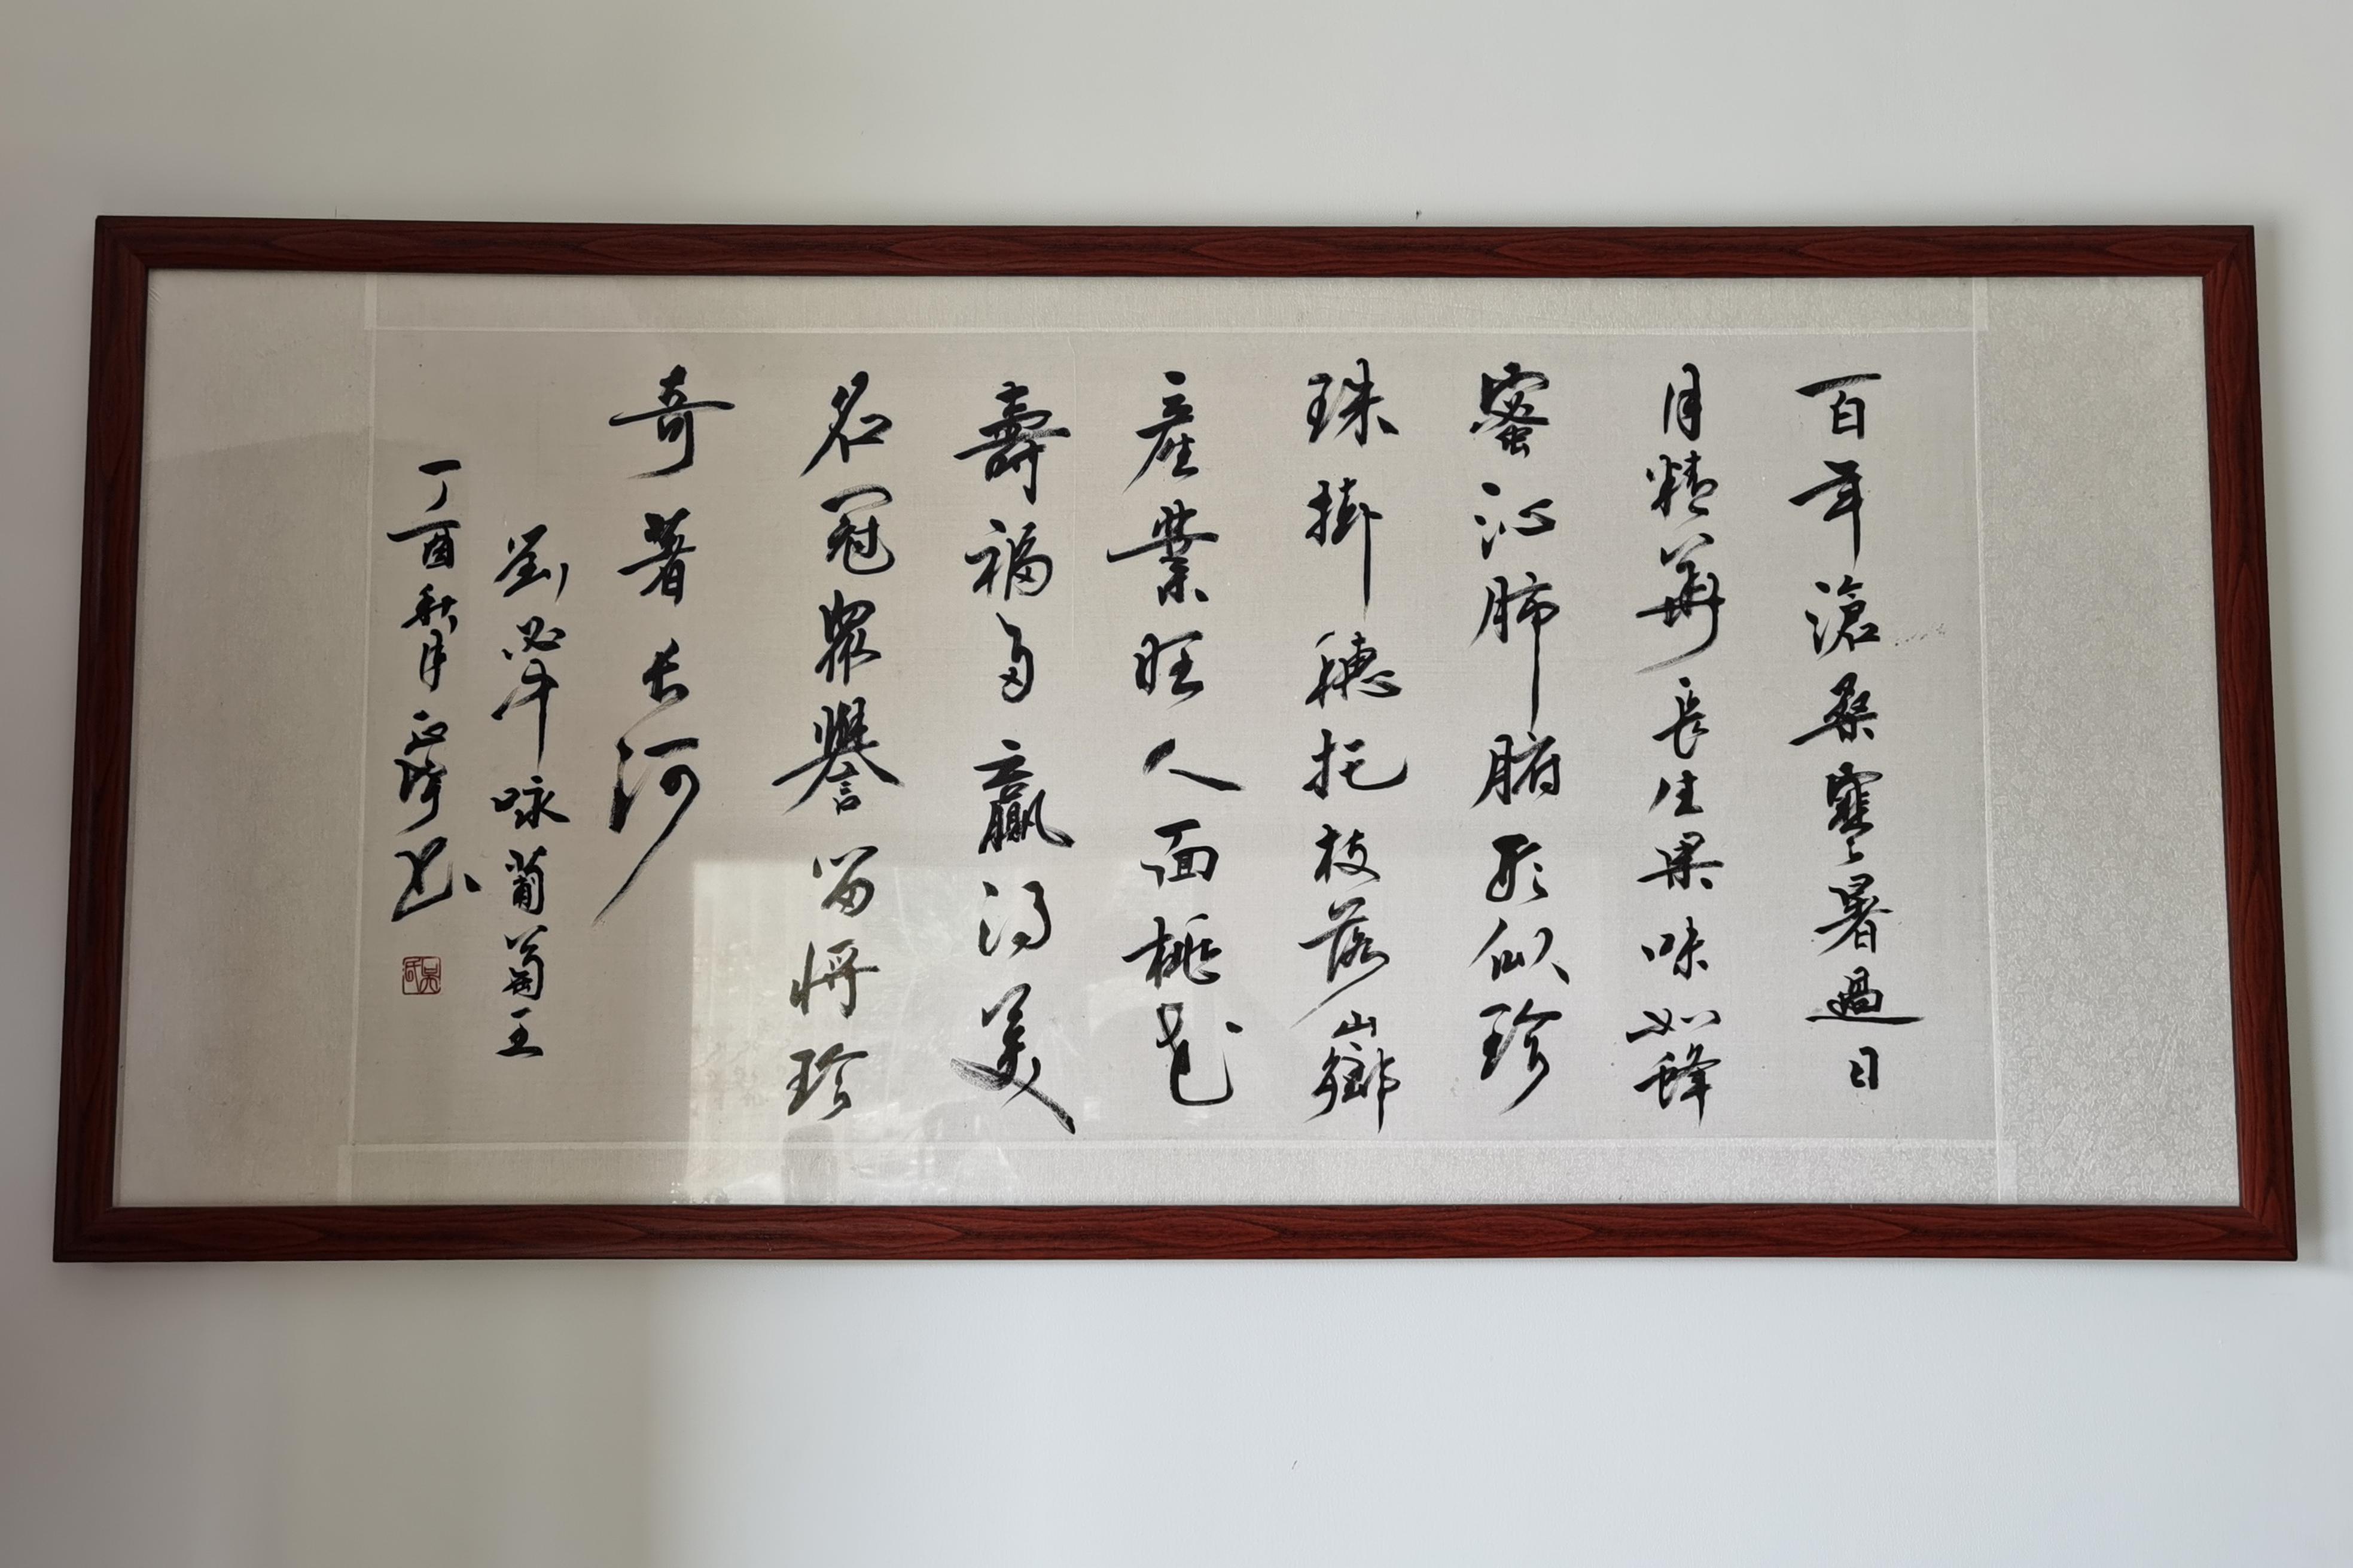 百年滄桑寒暑過日
月精華長生果味如蜂
蜜沁肺腑形似珍
珠掛穗托枝落山鄉
產業旺人面桃花
壽福多贏得美
名冠眾譽留將珍
奇著长河
劉必华咏葡萄王
丁酉秋月 书